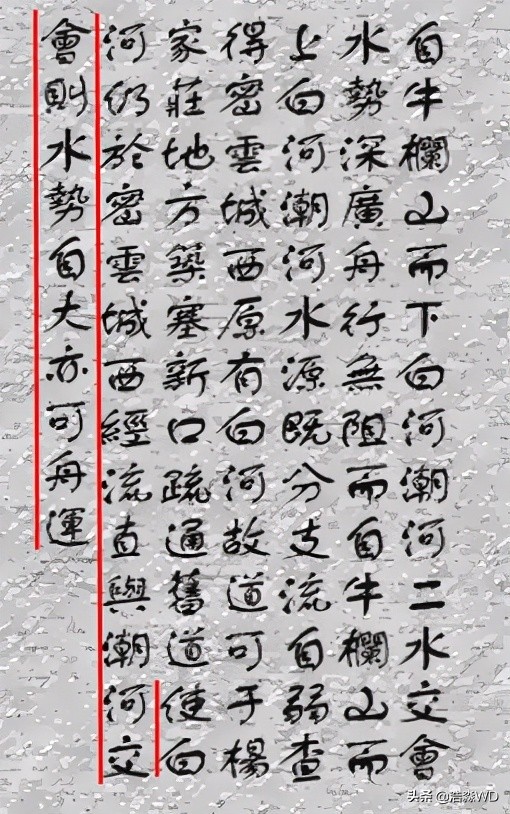 自牛欄山而下白河潮河二水交會
水勢深廣舟行無阻而自牛欄山而
上白河潮河水源既分支流自弱查
得密雲城西原有白河故道可于楊
家莊地方築塞新口疏通舊道使白
河仍於密雲城西經流直與潮河交
會則水勢自大亦可舟運
头条 @浩淼WD